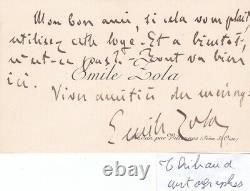 Mon bon ami, si cela vous plaît,
utilisez cette loge. Et à bientôt,
n'est-ce pas? Tout va bien
ici.
Emile Zola
Vives amitiés du ménage
Emile Zola
par (Seine & Oise)
Thibaud
autographes